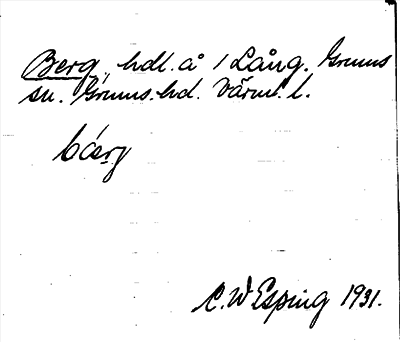 Berg, hdl. å 1 Lång. Grums
sn. Grums hd. Värml. l.
bærj
C. W Esping 1931.